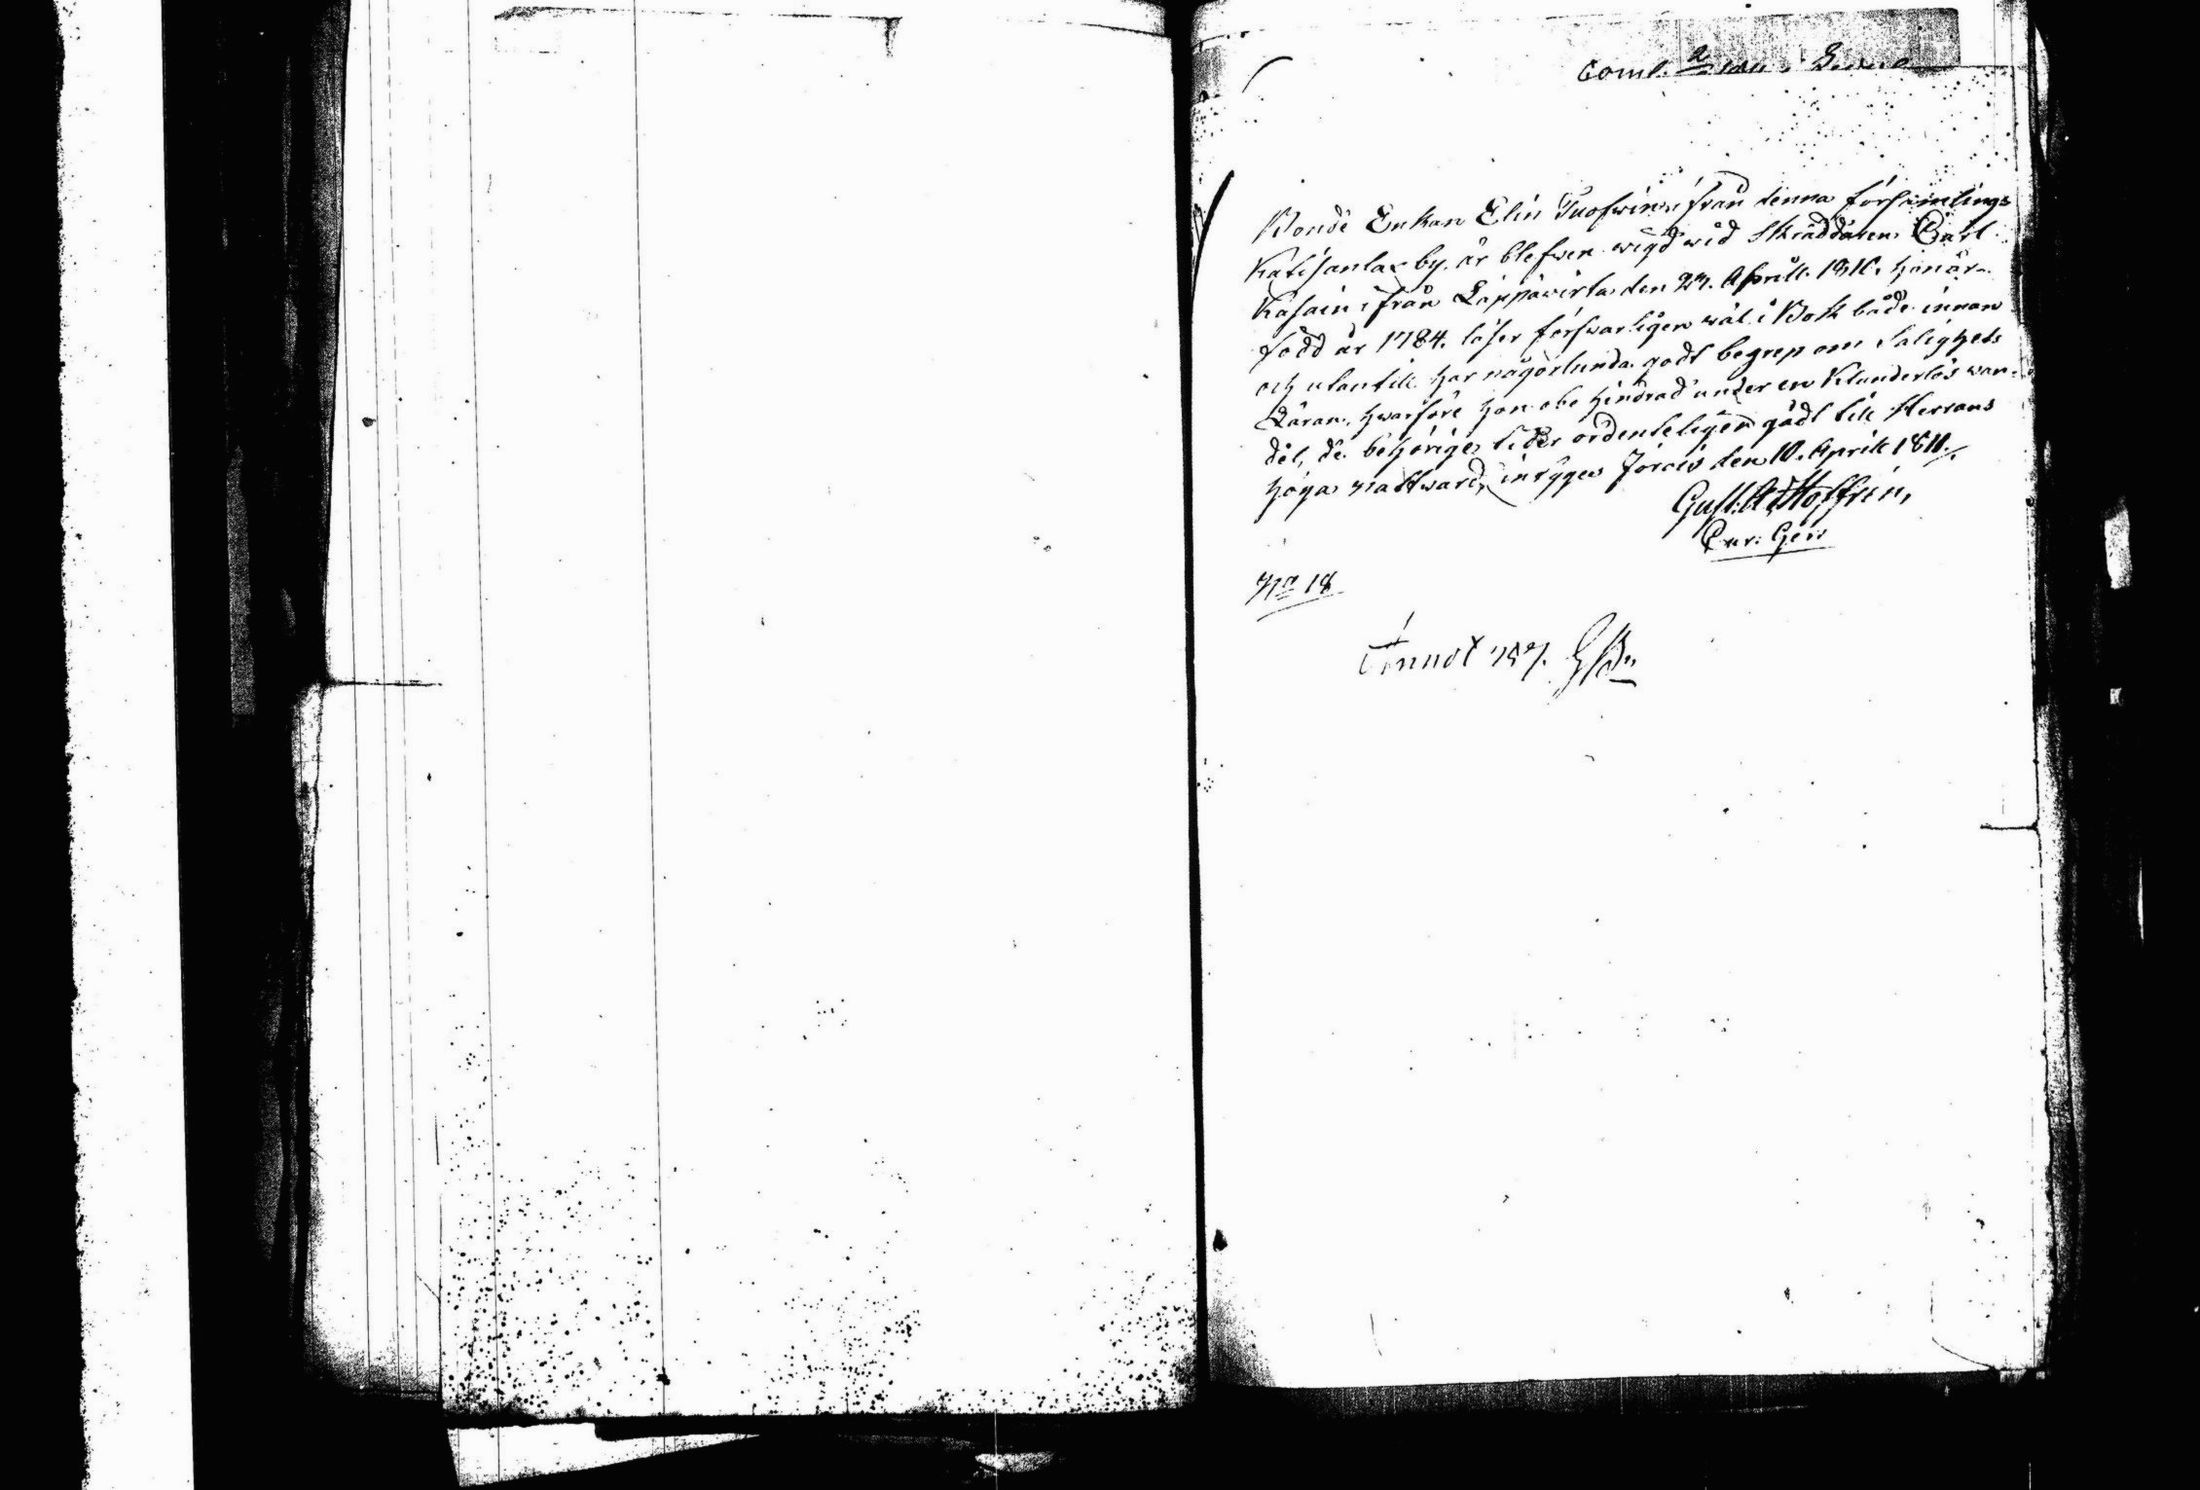 Bonde Enkan Elin Tuofwin, ifrån denna församlings
Katisanlax by. är blefwen wigd wid Skräddaren Carl
Kasain ifrån Leppäwirta den 27. Aprill 1810. hon är
född år 1784. läser förswarligen wäl i Bok både innan
och utantill har någorlunda godt begrep om Salighets
Läran, hwarföre hon obehindrad under en Klanderlös wan-
del, de behörige tider ordenteligen gådt till Herrans
höga nattward, intyges Jorois den 10. April 1811.
Gust. Ad. Hoffrén,
Cur: Gen
No 18
Annot 757.